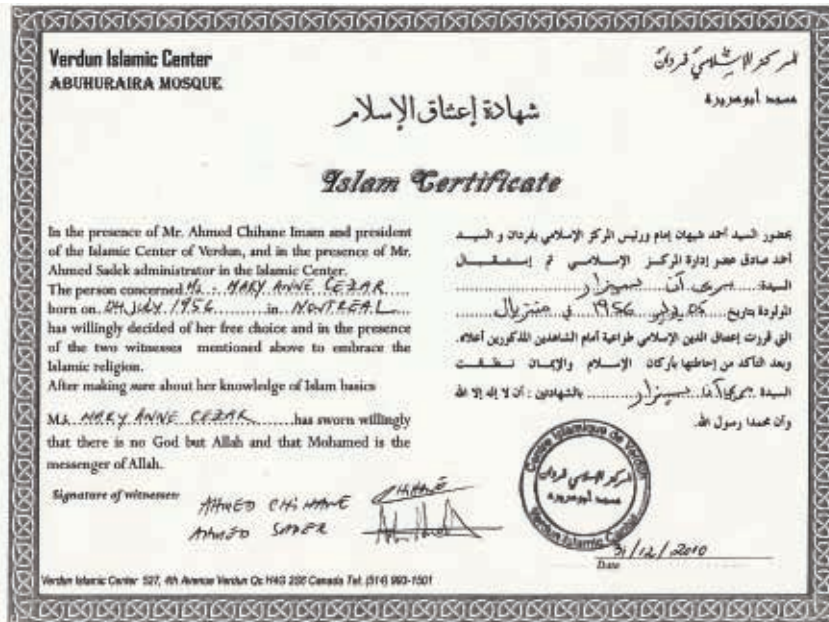 Verdun Islamic Center
ABUHURAIRA MOSQUE
المركز الإسلامي فردان
مسجد أبو هريرة
شهادة إعثاق الإسلام
Islam Certificate
In the presence of Mr. Ahmed Chihane Imam and president
of the Islamic Center of Verdun, and in the presence of Mr.
Ahmed Sadek administrator in the Islamic Center.
The person concerned Ms : MARY ANNE CEZAR
born on 04 JULY 1956 in MONTREAL
has willingly decided of her free choice and in the presence
of the two witnesses mentioned above to embrace the
Islamic religion.
After making sure about her knowledge of Islam basics
Ms. MARY ANNE CEZAR has sworn willingly
that there is no God but Allah and that Mohamed is the
messenger of Allah.
بحضور السيد أحمد شيهان إمام ورئيس المركز الإسلامي بفردان و السيد
أحمد صادق عضو إدارة المركز الإسلامي تم إستقبال
السيدة: آنا سيزار
المولودة بتاريخ 1956 في منتريال
التي قررت إعتناق الدين الإسلامي طواعية أمام الشاهدين المذكورين أعلاه.
وبعد التأكد من إحاطتها بأركان الإسلام والإيمان نطقت
السيدة آنا سيزار بالشهادتين : أن لا إله إلا الله
وأن محمدا رسول الله.
Signature of witnesses
AHMED CHIHANE CHIHANE
AHMED SADEK
Centre Islamique de Verdun
المركز الإسلامي فردان
مسجد أبو هريرة
Verdun Islamic Centre
31/12/2010
Date
Verdun Islamic Center 527, 4th Avenue Verdun Qc H4G Canada Tel: (514) 993-1501